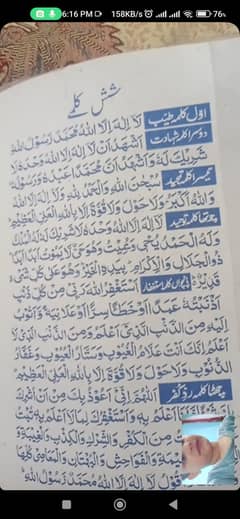 6:16 PM 158KB/s 76%
شش کلمے
اوّل کلمہ طیّب لَا اِلٰهَ اِلَّا اللهُ مُحَمَّدٌ رَّسُوْلُ اللهِ
دوسرا کلمہ شہادت اَشْهَدُ اَنْ لَّا اِلٰهَ اِلَّا اللهُ وَحْدَهٗ لَا
شَرِيْكَ لَهٗ وَاَشْهَدُ اَنَّ مُحَمَّدًا عَبْدُهٗ وَرَسُوْلُهٗ
تیسرا کلمہ تمجید سُبْحٰنَ اللهِ وَالْحَمْدُ لِلّٰهِ وَلَا اِلٰهَ اِلَّا اللهُ
وَاللهُ اَكْبَرُ وَلَا حَوْلَ وَلَا قُوَّةَ اِلَّا بِاللهِ الْعَلِيِّ الْعَظِيْمِ
چوتھا کلمہ توحید لَا اِلٰهَ اِلَّا اللهُ وَحْدَهٗ لَا شَرِيْكَ لَهٗ لَهُ الْمُلْكُ
وَلَهُ الْحَمْدُ يُحْيٖ وَيُمِيْتُ وَهُوَ حَيٌّ لَّا يَمُوْتُ اَبَدًا اَبَدًا
ذُو الْجَلَالِ وَالْاِكْرَامِ بِيَدِهِ الْخَيْرُ وَهُوَ عَلٰى كُلِّ شَيْءٍ
قَدِيْرٌ پانچواں کلمہ استغفار اَسْتَغْفِرُ اللهَ رَبِّيْ مِنْ كُلِّ ذَنْبٍ
اَذْنَبْتُهٗ عَمَدًا اَوْ خَطَأً سِرًّا اَوْ عَلَانِيَةً وَّاَتُوْبُ
اِلَيْهِ مِنَ الذَّنْبِ الَّذِيْ اَعْلَمُ وَمِنَ الذَّنْبِ الَّذِيْ لَا
اَعْلَمُ اِنَّكَ اَنْتَ عَلَّامُ الْغُيُوْبِ وَسَتَّارُ الْعُيُوْبِ وَغَفَّارُ
الذُّنُوْبِ وَلَا حَوْلَ وَلَا قُوَّةَ اِلَّا بِاللهِ الْعَلِيِّ الْعَظِيْمِ
چھٹا کلمہ ردِّ کفر اَللّٰهُمَّ اِنِّيْ اَعُوْذُ بِكَ مِنْ اَنْ اُشْرِكَ
بِكَ شَيْئًا وَّاَنَا اَعْلَمُ بِهٖ وَاَسْتَغْفِرُكَ لِمَا لَا اَعْلَمُ بِهٖ تُبْتُ
مِنَ الْكُفْرِ وَالشِّرْكِ وَالْكِذْبِ وَالْغِيْبَةِ وَ
وَالْفَوَاحِشِ وَالْبُهْتَانِ وَالْمَعَاصِيْ كُلِّهَا
لَا اِلٰهَ اِلَّا اللهُ مُحَمَّدٌ رَّسُوْلُ اللهِ